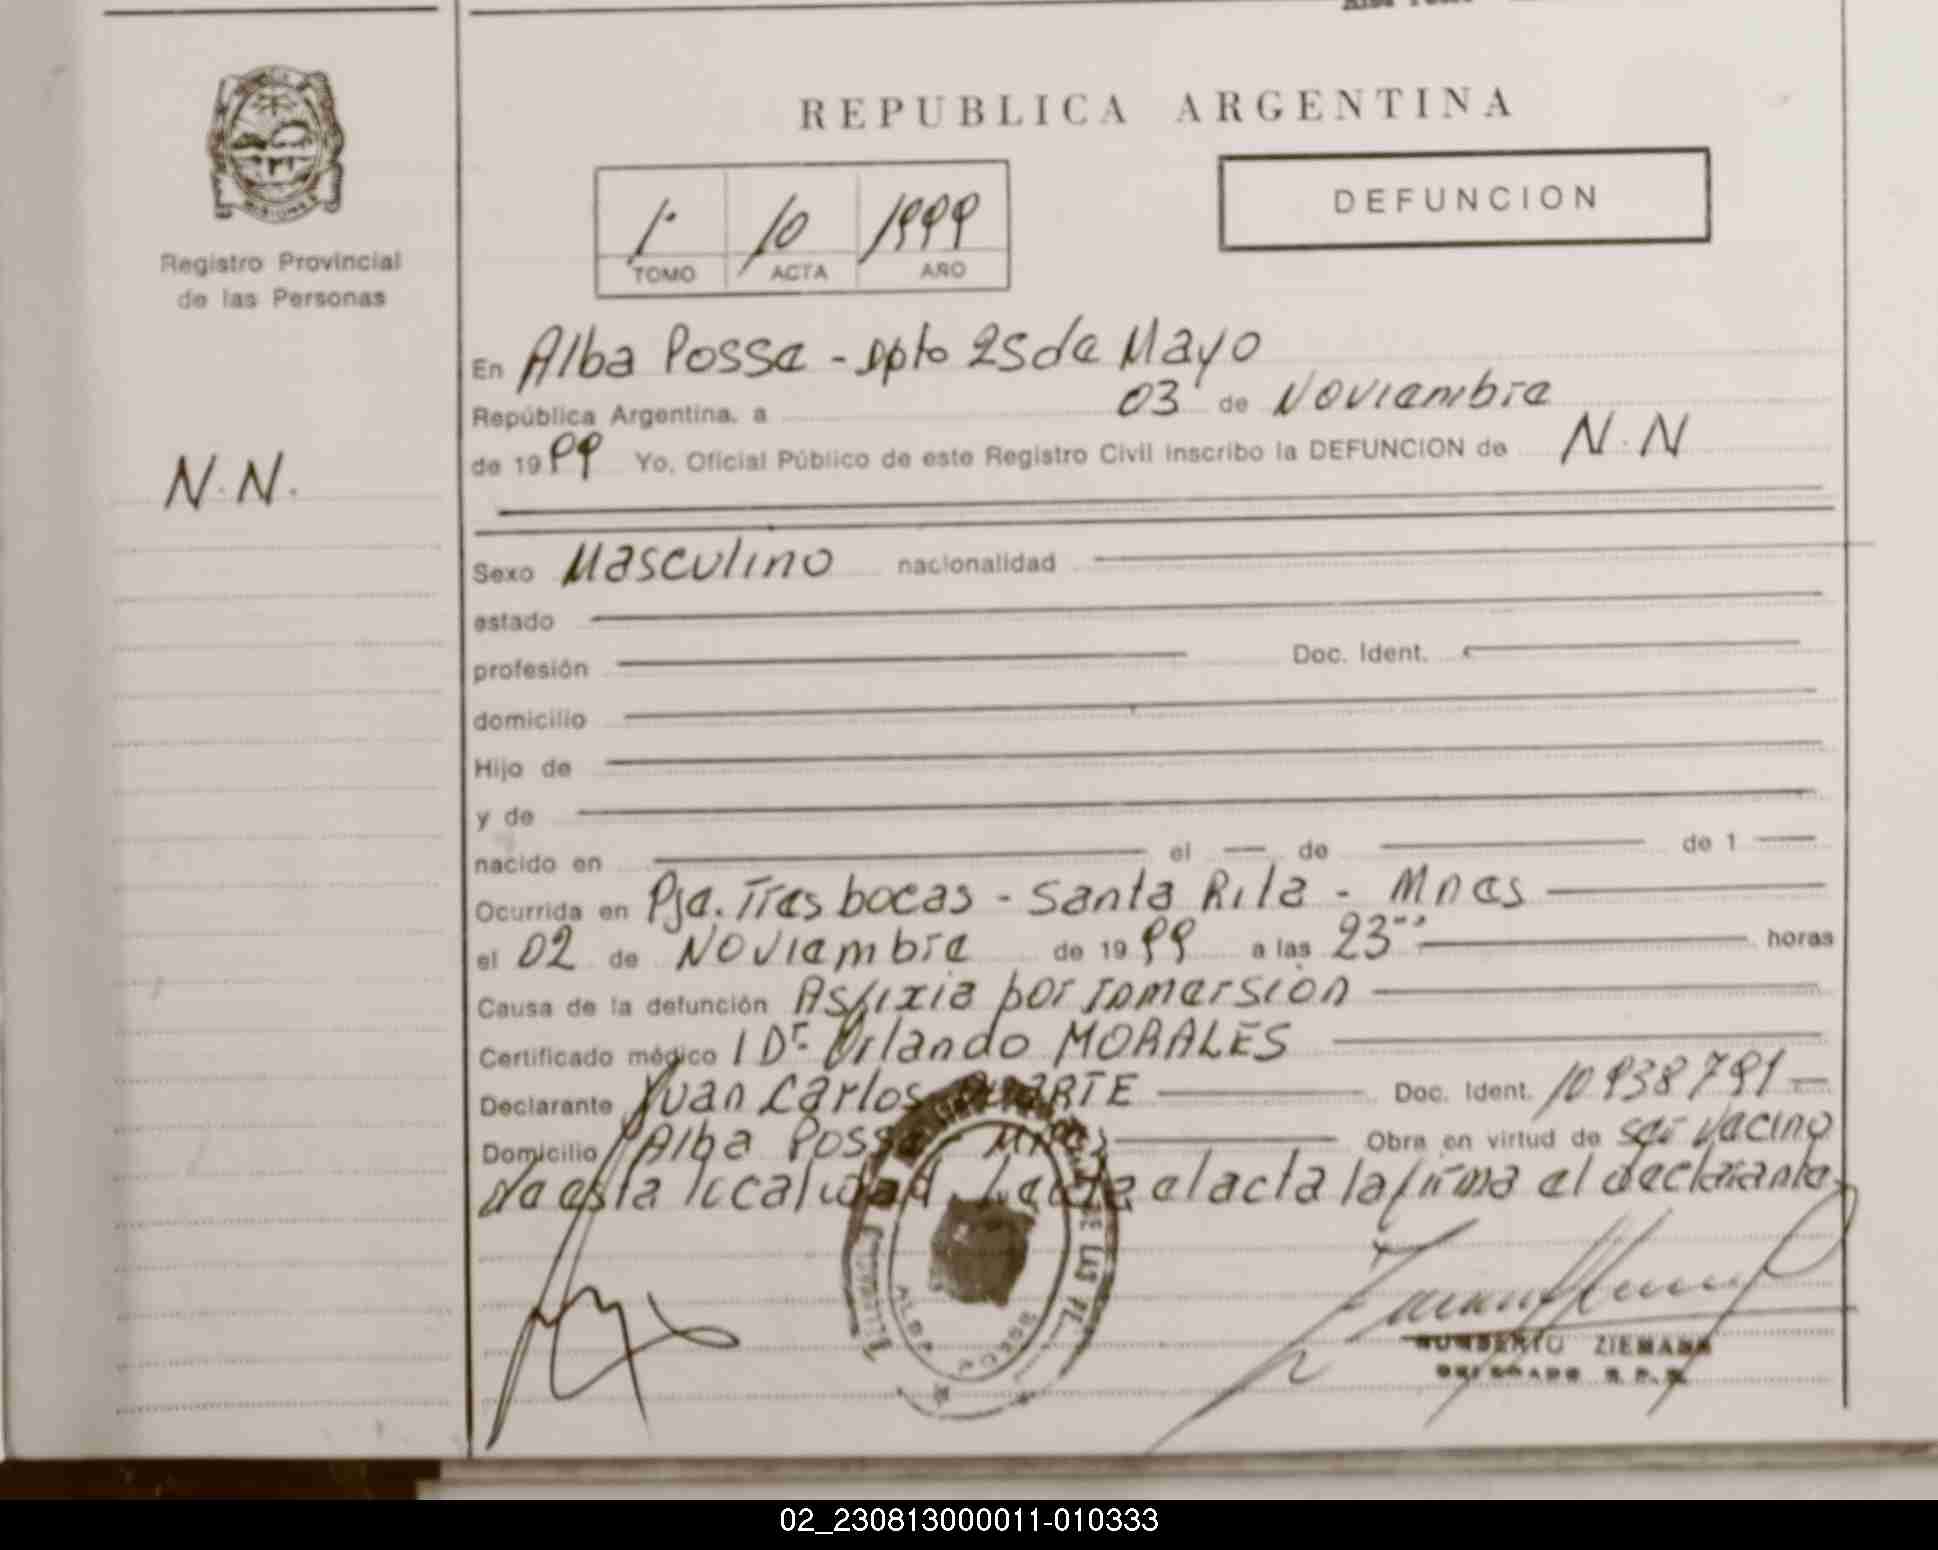 REPUBLICA ARGENTINA
DEFUNCION
1º 10 1999
TOMO ACTA AÑO
MISIONES
Registro Provincial
de las Personas
N.N.
En Alba Posse - Dpto 25 de Mayo
República Argentina, a 03 de Noviembre
de 1999 Yo, Oficial Público de este Registro Civil inscribo la DEFUNCION de N.N
Sexo Masculino nacionalidad
estado
profesión Doc. Ident.
domicilio
Hijo de
y de
nacido en el de de 1
Ocurrida en Pje. Tres bocas - Santa Rita - Mnes
el 02 de Noviembre de 1999 a las 23 horas
Causa de la defunción Asfixia por Inmersión
Certificado médico Dr. Orlando MORALES
Declarante Juan Carlos DUARTE Doc. Ident. 10938791
Domicilio Alba Posse - Mnes Obra en virtud de ser vecino
de esta localidad. Leída el acta la firma el declarante
DE LAS PE
ALBA POSSE
HUMBERTO ZIEMANN
DELEGADO R.P.P.
02_230813000011-010333